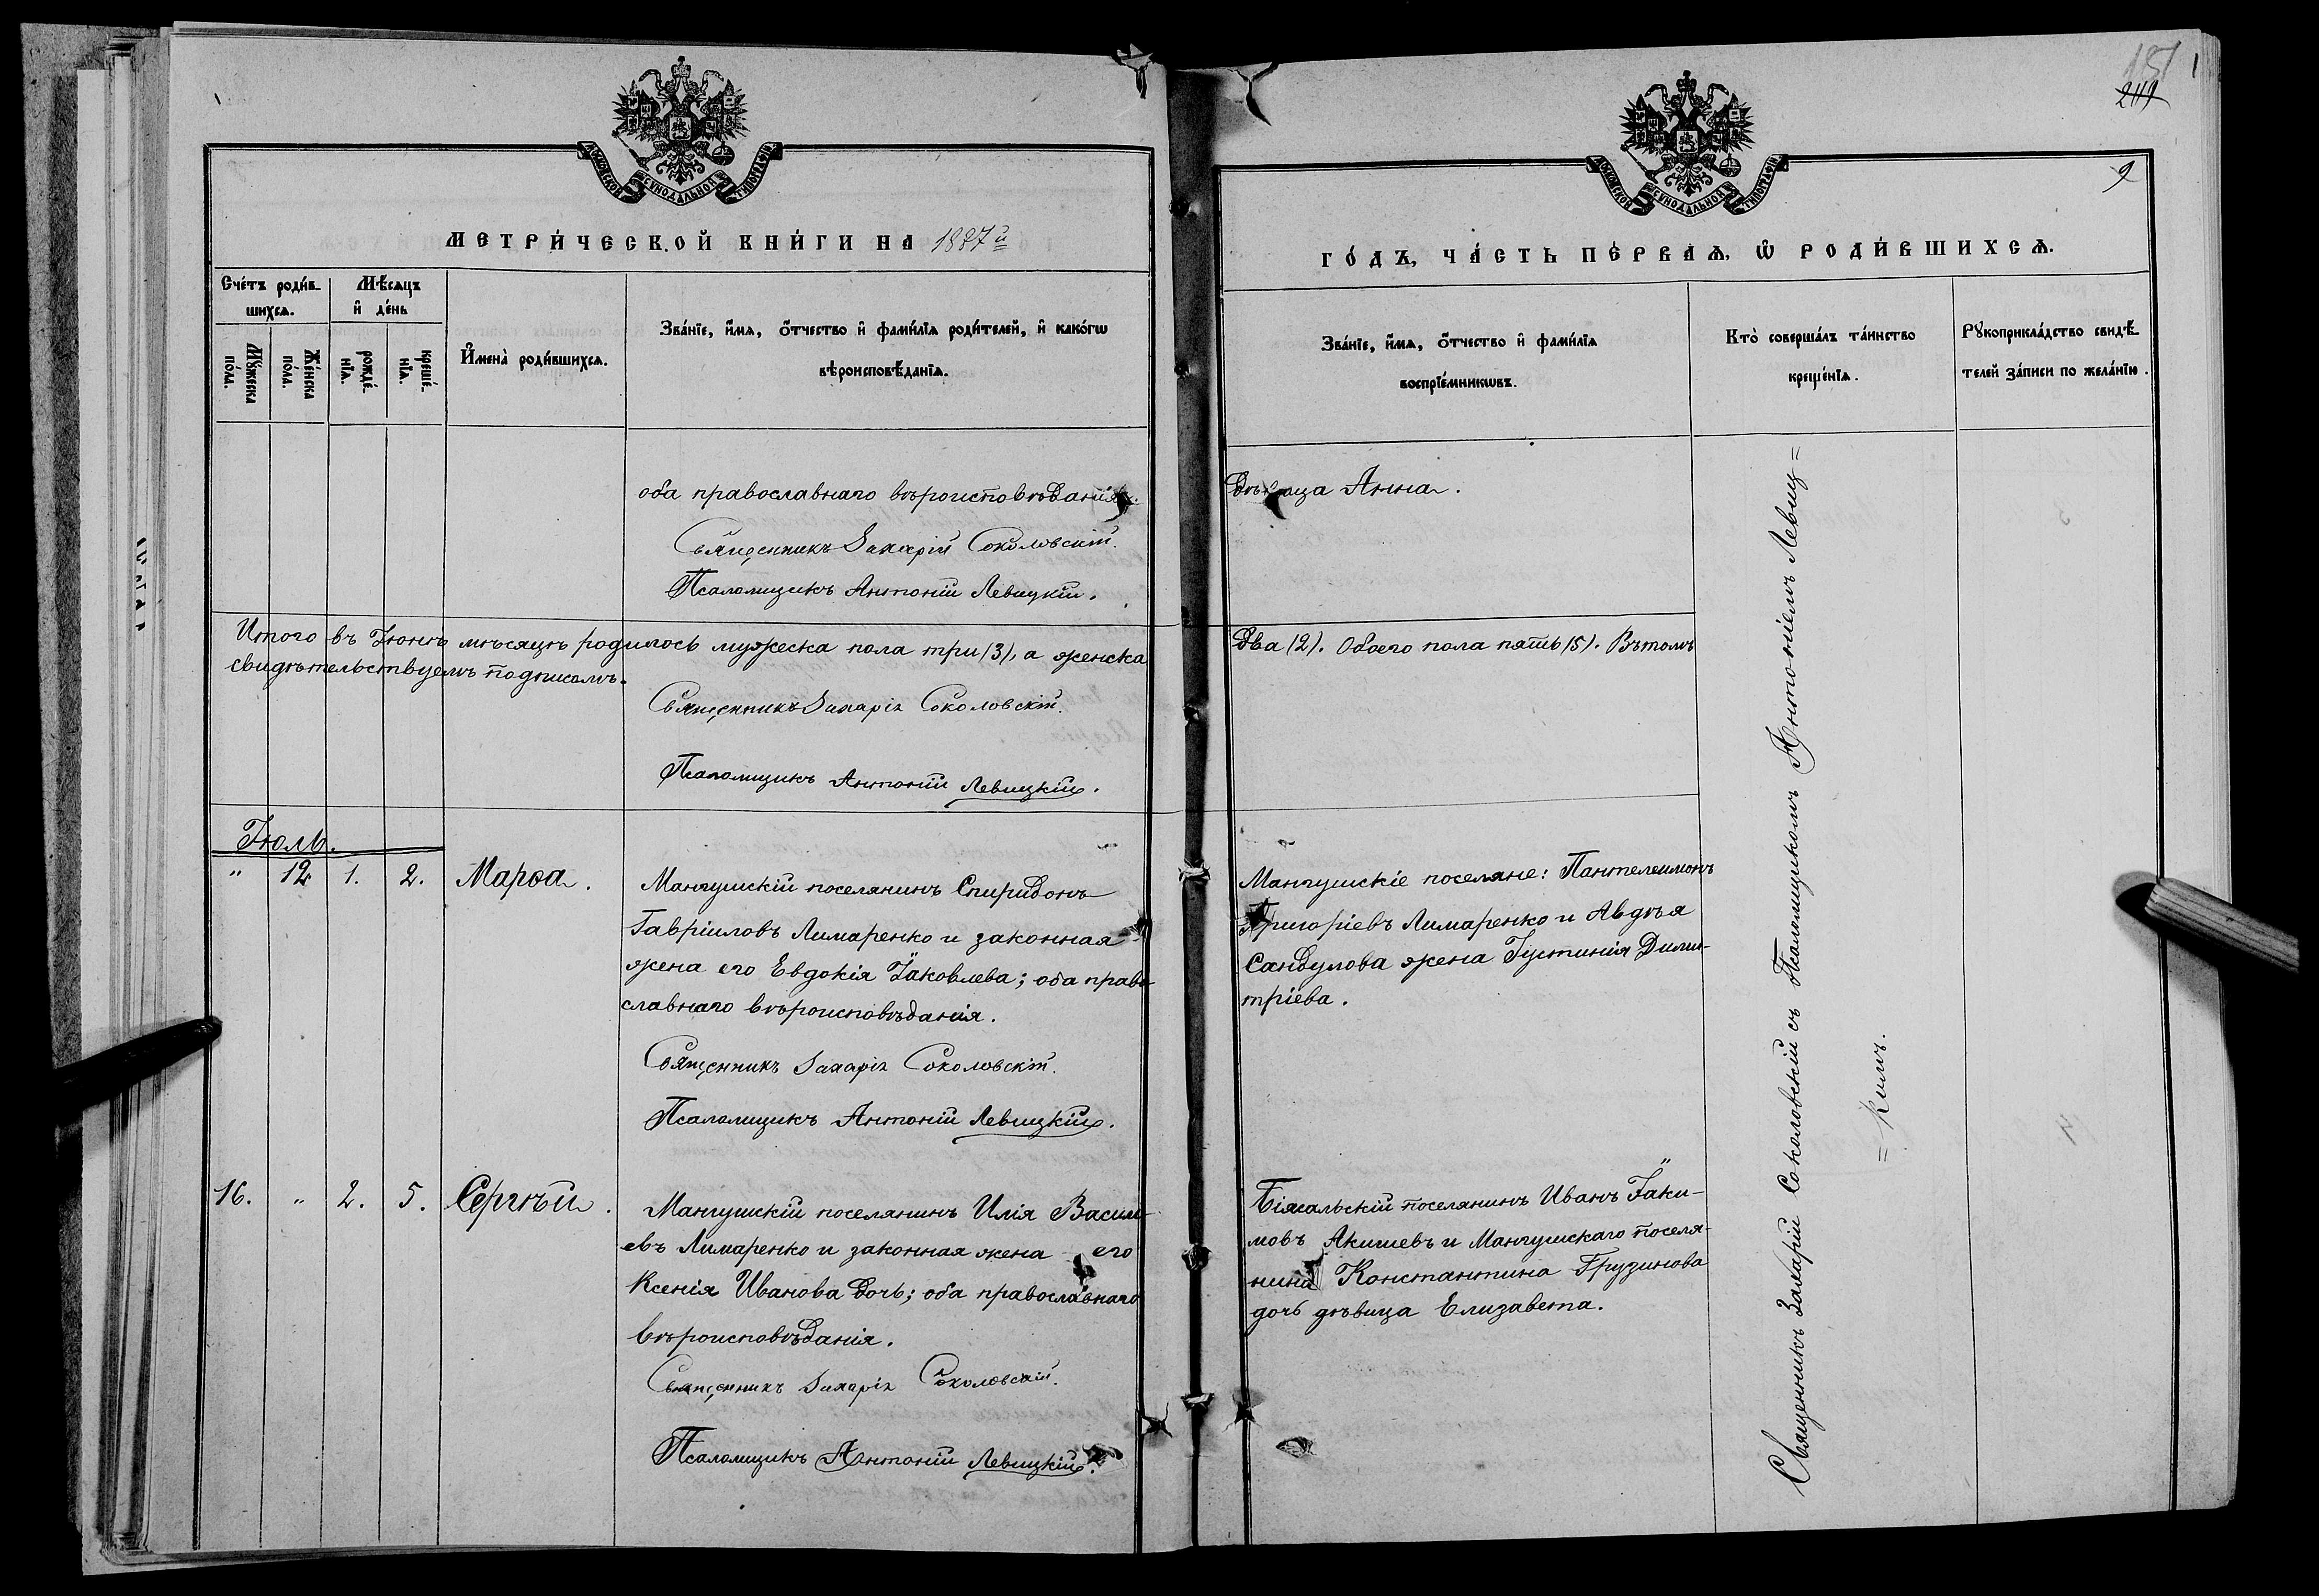 МОСКОВСКОЙ СѴНОДАЛЬНОЙ ТИПОГРАФІИ
МЕТРИ́ЧЕСКОЙ КНИ́ГИ НА 1887й
Сче́тъ роди́в-
шихсѧ.
Мꙋ́жеска
по́ла.
Же́нска
по́ла.
Мѣ́сѧцъ
и҆ де́нь
рожде́-
нїѧ.
креще́-
нїѧ.
И҆мена̀ роди́вшихсѧ.
Зва́нїе, и҆́мѧ, ѻ҆́тчество и҆ фами́лїѧ роди́телей, и҆ како́гѡ
вѣроисповѣ́данїѧ.
оба православнаго вѣроисповѣданія.
Священникъ Захарій Соколовскій.
Псаломщикъ Антоній Левицкій.
Итого въ Іюнѣ мѣсяцѣ родилось мужеска пола три (3), а женска
свидѣтельствуемъ подписомъ.
Священникъ Захарія Соколовскій.
Псаломщикъ Антоній Левицкій.
Іюль.
" 12 1. 2. Марѳа.
Мангушскій поселянинъ Спиридонъ
Гавріиловъ Лимаренко и законная
жена его Евдокія Іаковлева; оба право-
славнаго вѣроисповѣданія.
Священникъ Захарія Соколовскій.
Псаломщикъ Антоній Левицкій.
16. " 2. 5. Сергѣй.
Мангушскій поселянинъ Илія Василі-
евъ Лимаренко и законная жена его
Ксенія Иванова дочь; оба православнаго
вѣроисповѣданія.
Священникъ Захарія Соколовскій.
Псаломщикъ Антоній Левицкій.
219
9
МОСКОВСКОЙ СѴНОДАЛЬНОЙ ТИПОГРАФІИ
ГО́ДЪ, ЧА́СТЬ ПЕ́РВАѦ, Ѽ РОДИ́ВШИХСѦ.
Зва́нїе, и҆́мѧ, ѻ҆́тчество и҆ фами́лїѧ
воспрїе́мникѡвъ.
Кто̀ соверша́лъ та́инство
креще́нїѧ.
Рꙋкоприкла́дство свидѣ́-
телей за́писи по жела́нїю.
дѣвица Анна.
два (2). Обоего пола пять (5). Въ томъ
Мангушскіе поселяне: Пантелеимонъ
Григоріевъ Лимаренко и Авдѣя
Сандулова жена Іустинія Дими-
тріева.
Біясальскій поселянинъ Иванъ Іаки-
мовъ Акишевъ и Мангушскаго поселя-
нина Константина Грузинова
дочь дѣвица Елизавета.
Священникъ Захарій Соколовскій съ Псаломщикомъ Антоніемъ Левиц=
=кимъ.